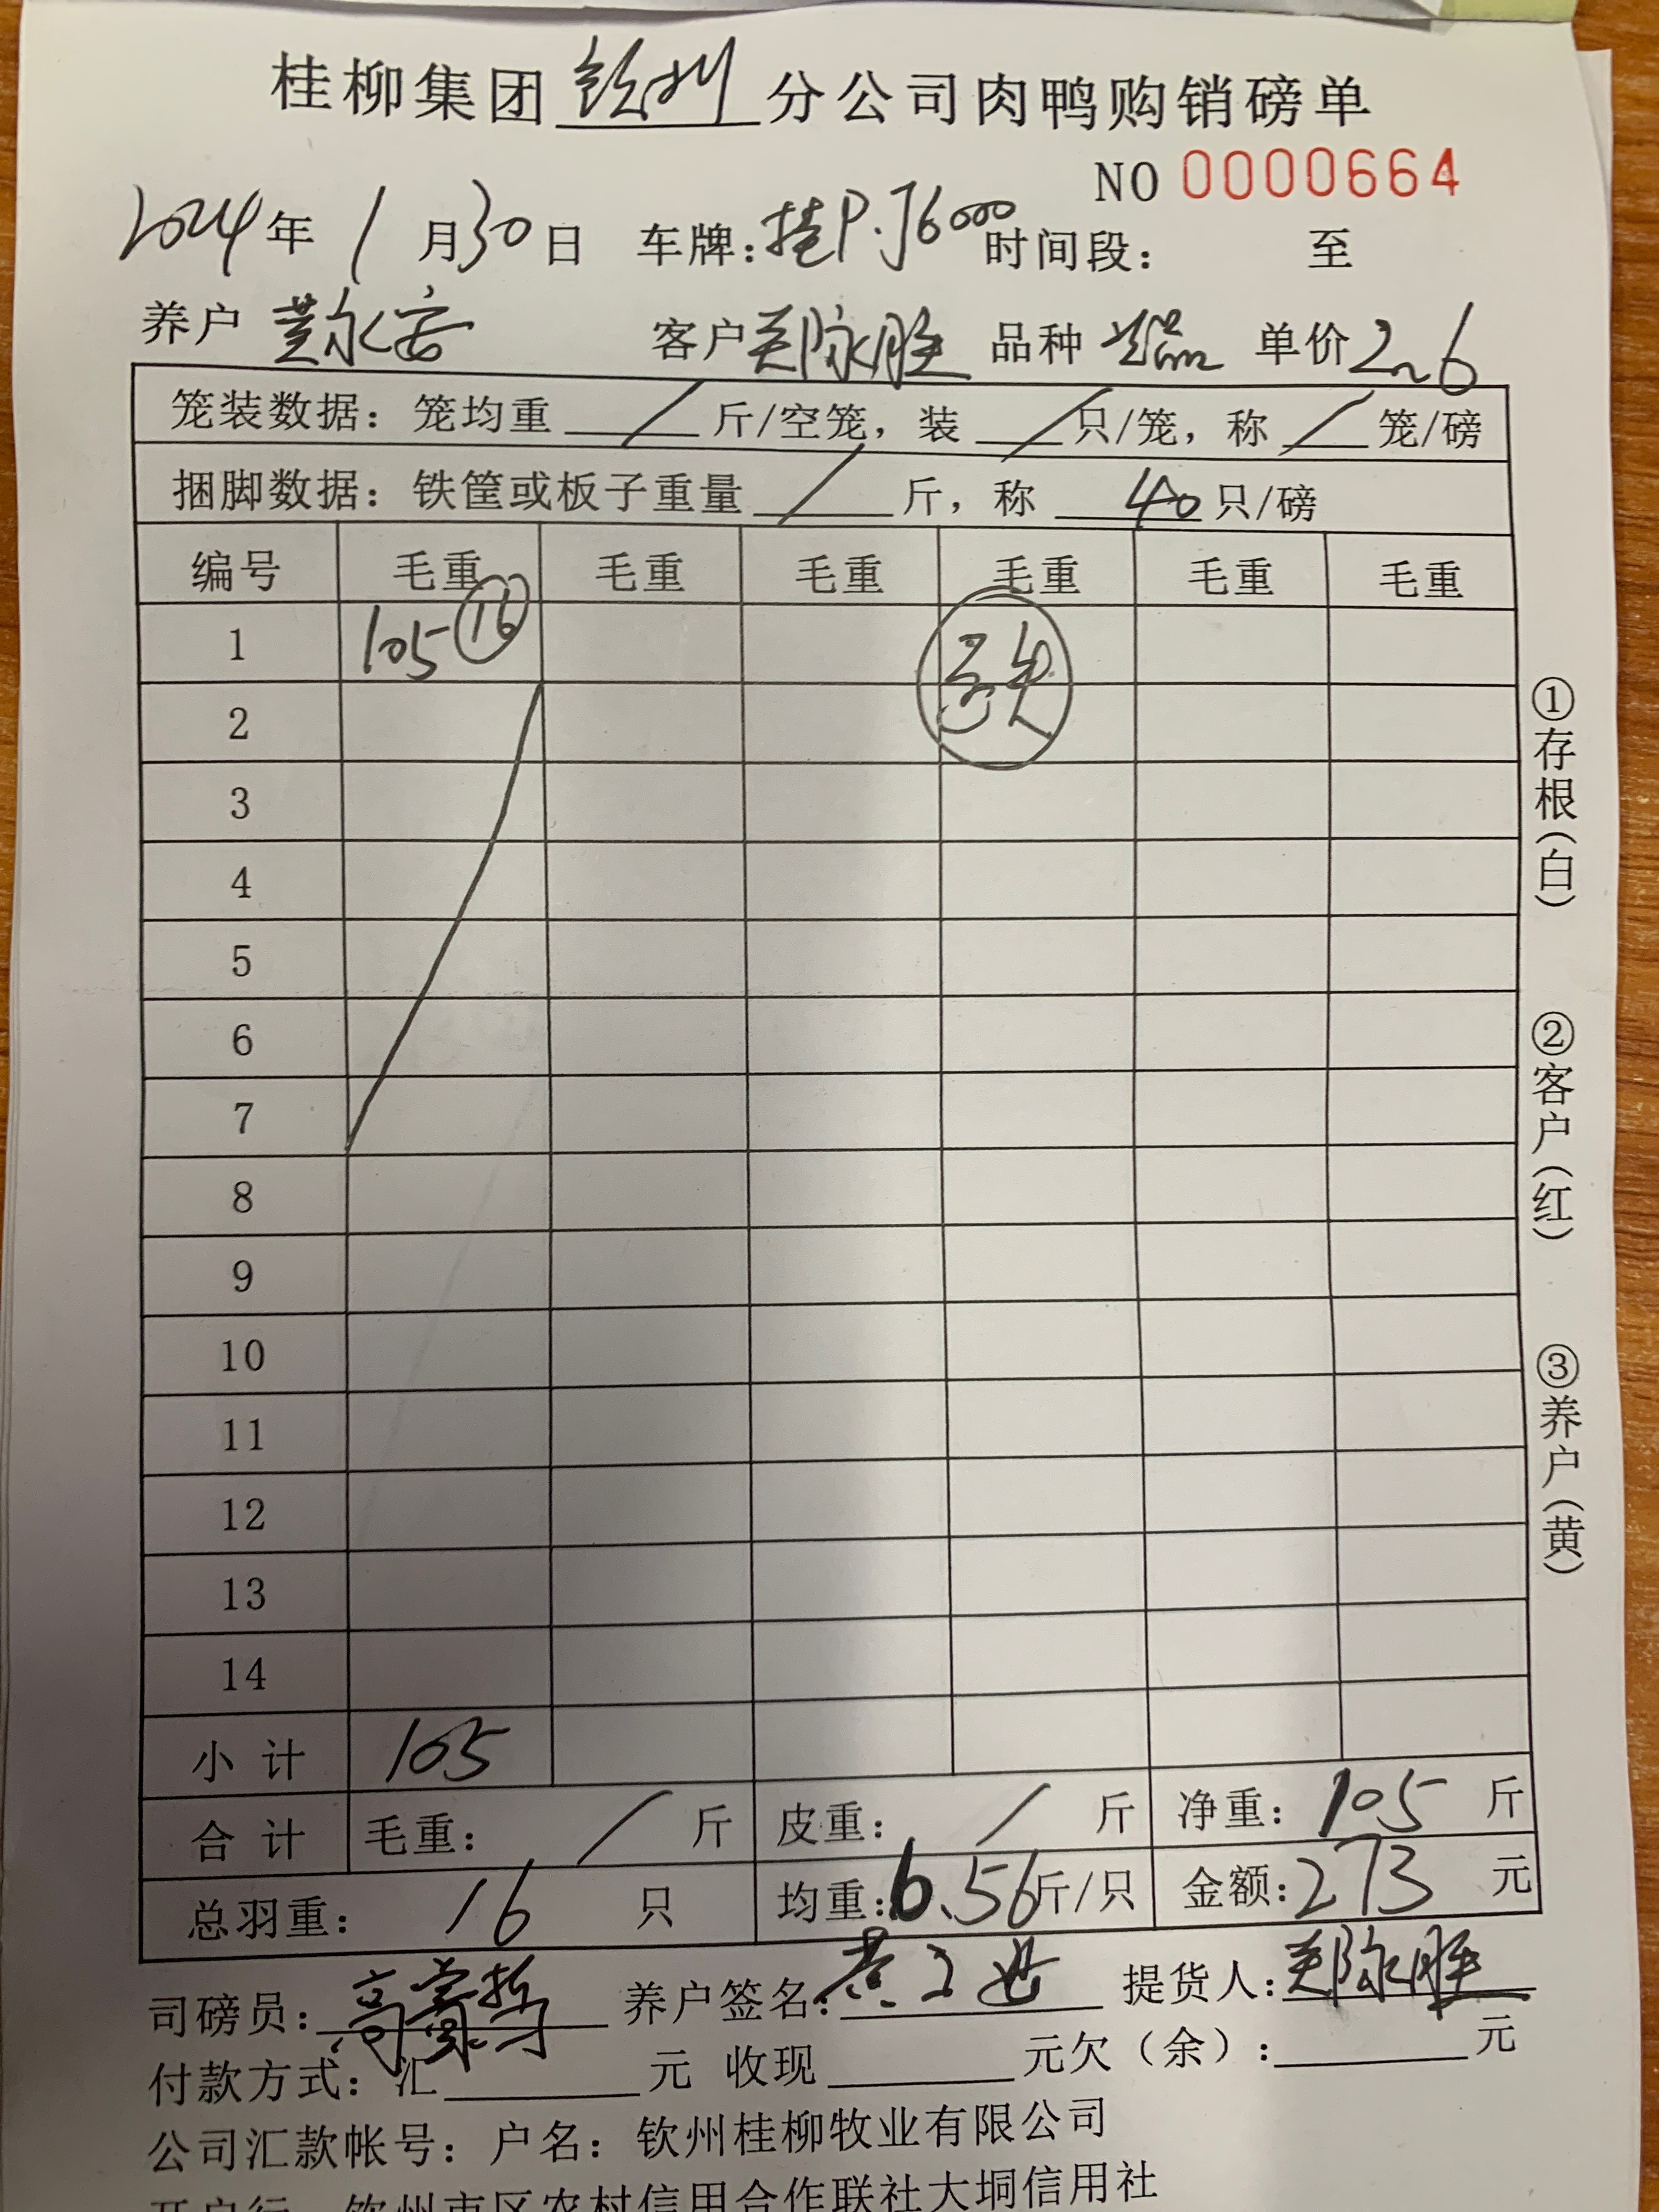 桂柳集团钦州分公司肉鸭购销磅单
NO 0000664
2024年1月30日 车牌:桂P·J6000 时间段: 至
养户 黄永安 客户 郑脉胜 品种 单价 2.6
笼装数据: 笼均重 / 斤/空笼, 装 / 只/笼, 称 / 笼/磅
捆脚数据: 铁筐或板子重量 / 斤, 称 40 只/磅
编号 毛重 毛重 毛重 毛重 毛重 毛重
1 105 16
2
3
4
5
6
7
8
9
10
11
12
13
14
小计 105
合计 毛重: / 斤 皮重: / 斤 净重: 105 斤
总羽重: 16 只 均重: 6.56 斤/只 金额: 273 元
司磅员: 养户签名: 提货人: 郑脉胜
付款方式: 汇 元 收现 元欠(余): 元
公司汇款帐号: 户名: 钦州桂柳牧业有限公司
开户行 钦州市区农村信用合作联社大垌信用社
①存根(白)
②客户(红)
③养户(黄)